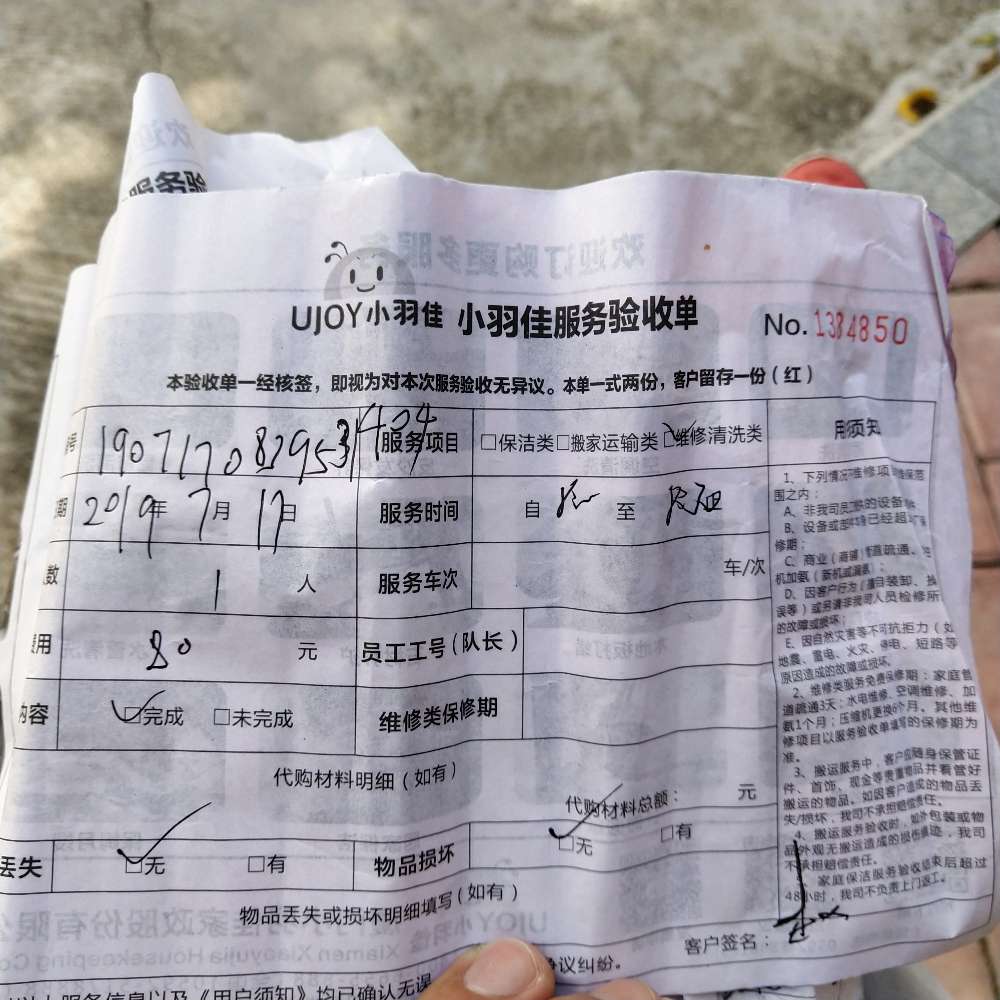 服务验
UJOY小羽佳 小羽佳服务验收单 No. 1384850
本验收单一经核签，即视为对本次服务验收无异议。本单一式两份，客户留存一份（红）
号 190717082953 1404 服务项目 □保洁类□搬家运输类□维修清洗类
期 2019年 7月 17日 服务时间 自 至
人数 1 人 服务车次 车/次
费用 80 元 员工工号（队长）
内容 □完成 □未完成 维修类保修期
代购材料明细（如有）
代购材料总额： 元
丢失 □无 □有 物品损坏 □无 □有
物品丢失或损坏明细填写（如有）
用须知
1、下列情况 维修项 维保范
围之内：
A、非我司员 的设备
B、设备或 已经超
修期；
C、商业（商铺） 直疏通、
机加氨（新机或漏氨）；
D、因客户行为（ 自装卸、
误等）或另请非我司人员检修所
的故障或损坏；
E、因自然灾害等不可抗拒力（如
地震、雷电、火灾、停电、短路等
原因造成的故障或损坏。
2、维修类服务免费保修期：家庭管
道疏通3天；水电维修、空调维修、加
氨1个月；压缩机更换6个月。其他维
修项目以服务验收单填写的保修期为
准。
3、搬运服务中，客户应随身保管证
件、首饰、现金等贵重物品并看管好
搬运的物品。如因客户造成的物品丢
失/损坏，我司不承担赔偿责任。
4、搬运服务验收时，如外包装或物
品外观无搬运造成的损伤痕迹，我司
不承担赔偿责任。
家庭保洁服务验收结束后超过
48小时，我司不负责上门返工。
客户签名：
议纠纷。
服务信息以及《用户须知》均已确认无误